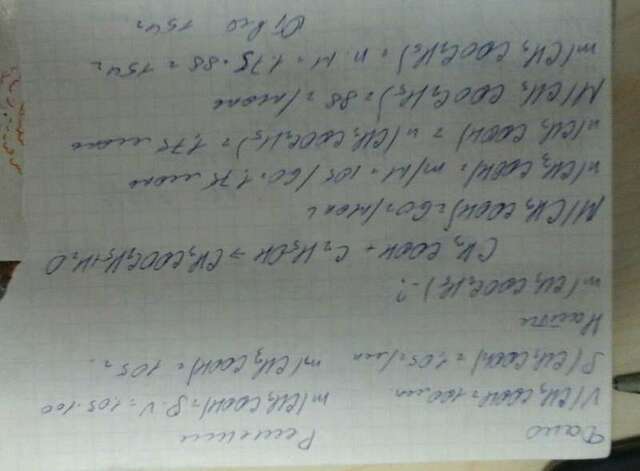 Дано Решение
V(CH3COOH)=100 мл m(CH3COOH)=ρ.V=1.05.100
ρ(CH3COOH)=1,05г/мл m(CH3COOH)=105г.
Найти
m(CH3COOC2H5)-?
CH3COOH + C2H5OH → CH3COOC2H5+H2O
M(CH3COOH)=60г/моль
n(CH3COOH)=m/M=105/60=1,75 моль
n(CH3COOH)=n(CH3COOC2H5)=1,75 моль
M(CH3COOC2H5)=88г/моль
m(CH3COOC2H5)=n.M=1.75.88=154г
Ответ 154г